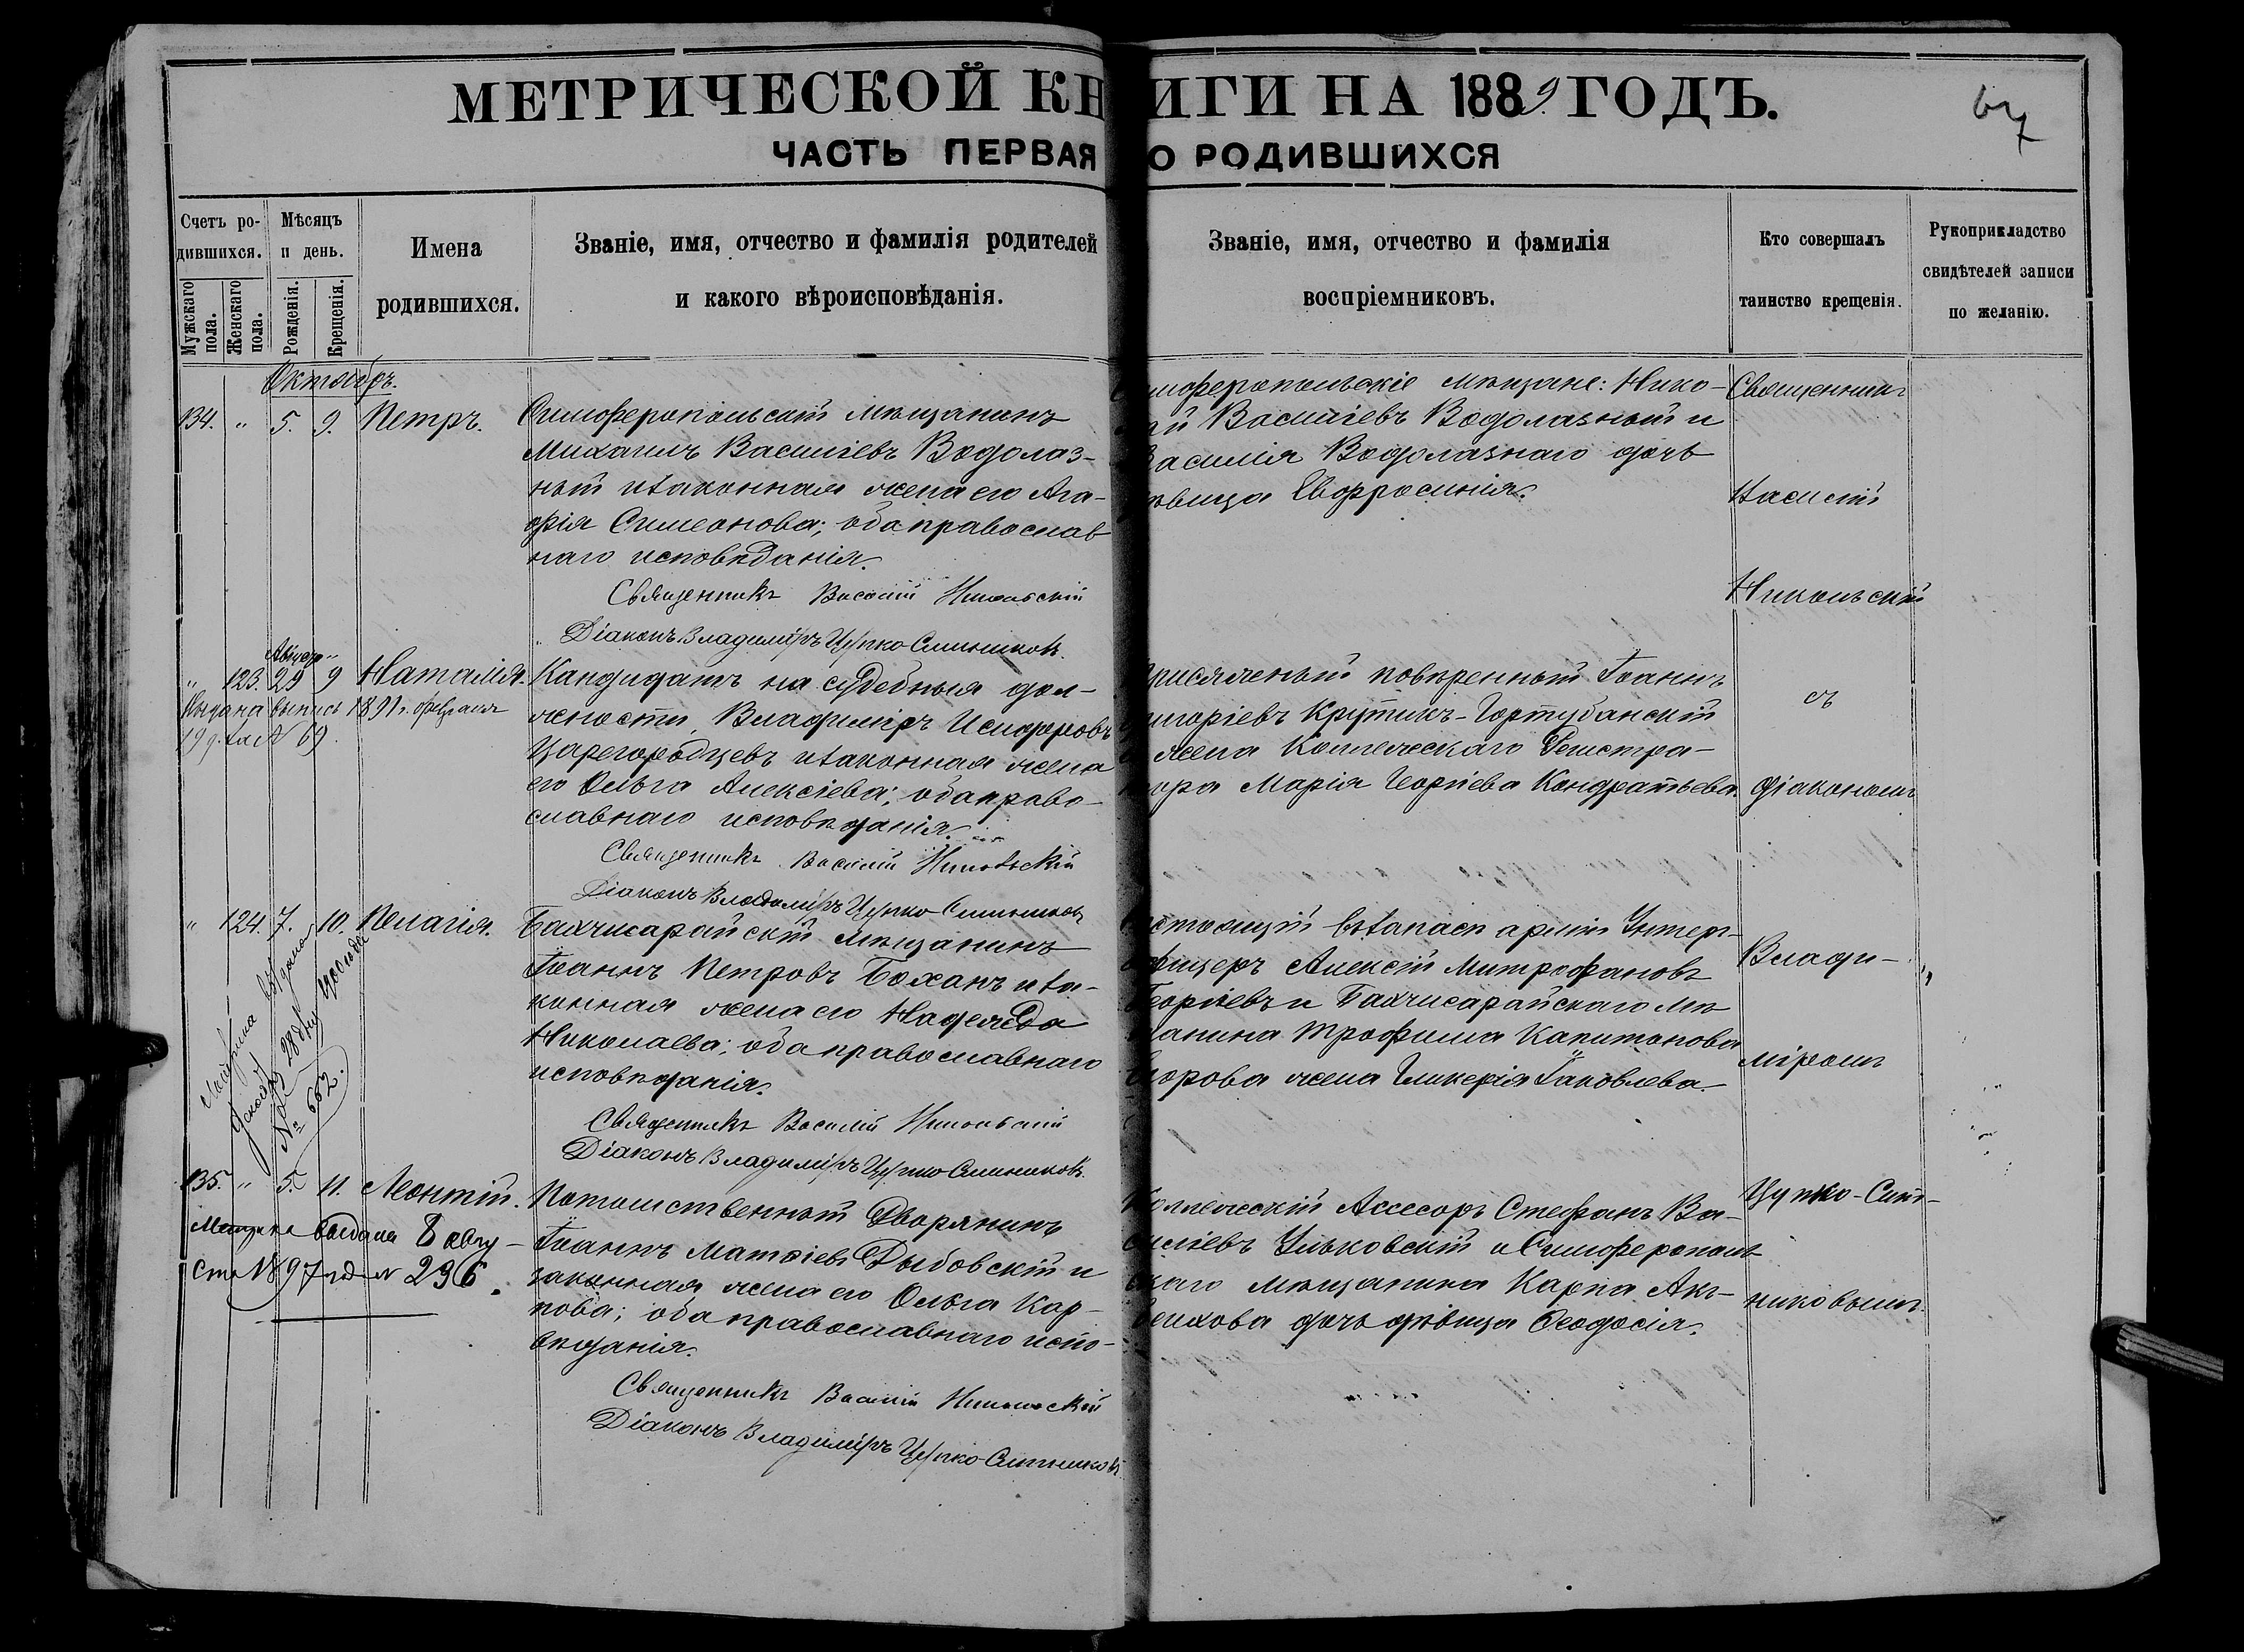 МЕТРИЧЕСКОЙ КНИГИ НА 1889 ГОДЪ.
67
ЧАСТЬ ПЕРВАЯ О РОДИВШИХСЯ
Счетъ ро-
дившихся.
Мужскаго пола.
Женскаго пола.
Мѣсяцъ
и день.
Рожденія.
Крещенія.
Имена
родившихся.
Званіе, имя, отчество и фамилія родителей
и какого вѣроисповѣданія.
Званіе, имя, отчество и фамилія
воспріемниковъ.
Кто совершалъ
таинство крещенія.
Рукоприкладство
свидѣтелей записи
по желанію.
Октябрь.
134. " 5. 9. Петръ.
Симферопольскій мѣщанинъ
Михаилъ Василіевъ Водолаз-
ный и законная жена его Ага-
фія Симеонова; оба православ
наго исповѣданія.
Священникъ Василій Никольскій
Діаконъ Владиміръ Цупко-Ситниковъ.
имферопольскіе мѣщане: Нико-
ай Василіевъ Водолазный и
Василія Водолазнаго дочь
дѣвица Евфросинія.
" 123. Август 29 9 Наталія.
Выдана выпись 1891 г. февраля
19 д. за № 69.
Кандидатъ на судебныя дол-
жности, Владиміръ Исидоровъ
Царегородцевъ и законная жена
его Ольга Алексіева; оба право-
славнаго исповѣданія.
Священникъ Василій Никольскій
Діаконъ Владиміръ Цупко-Ситниковъ
Присяжный повѣренный Іоаннъ
Григоріевъ Крутикъ-Гортубанскій
и жена Коллежскаго Регистра-
тора Марія Георгіева Кондратьева.
" 124. 7. 10. Пелагія.
№ 662.
Бахчисарайскій мѣщанинъ
Іоаннъ Петровъ Боханъ и за-
конная жена его Надежда
Николаева; оба православнаго
исповѣданія.
Священникъ Василій Никольскій
Діаконъ Владиміръ Цупко-Ситниковъ.
остоящій въ запасѣ арміи Унтеръ-
фицеръ Алексій Митрофановъ
Георгіевъ и Бахчисарайскаго мѣ
щанина Трофима Капитонова
Егорова жена Гликерія Іаковлева.
135. " 5. 11. Леонтій.
Метрика выдана 8 авгу-
ста 1897 год № 296.
Потомственный Дворянинъ
Іоаннъ Матѳіевъ Дыбовскій и
законная жена его Ольга Кар-
пова; оба православнаго испо-
вѣданія.
Священникъ Василій Никольскій
Діаконъ Владиміръ Цупко-Ситниковъ
Коллежскій Ассесоръ Стефанъ Ва-
силіевъ Ульковскій и Симферополь
скаго мѣщанина Карпа
дочь дѣвица Ѳеодосія.
Священникъ
Василій
Никольскій
съ
діакономъ
Влади-
міромъ
Цупко-Сит-
никовымъ.